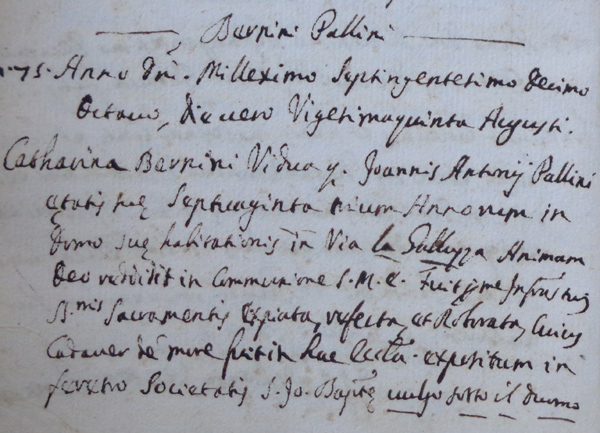 Bernini Pallini
n. 75. Anno Dni. Millesimo Septingentesimo Decimo
Octavo, die vero Vigesimaquinta Augusti.
Catharina Bernini Vidua q. Joannis Antonij Pallini
ętatis suę Septuaginta trium Annorum in
domo suę habitationis in Via la Galluzza Animam
Deo reddidit in Communione S. M. E. Fuit
SS.mis Sacramentis Expiata, refecta, et Roborata, Cuius
Cadaver de more fuit in hac Eccla. expositum in
feretro Societatis S. Jo. Baptę vulgo sotto il duomo